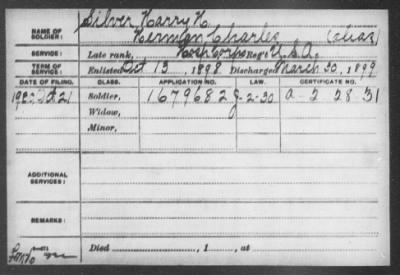 Silver, Harry H.
NAME OF SOLDIER: Herman, Charles (alias)
SERVICE: Late rank, Hosp Corps Reg't U.S.A.
TERM OF SERVICE: Enlisted Oct 13, 1898 Discharged March 30, 1899
DATE OF FILING. CLASS. APPLICATION NO. LAW. CERTIFICATE NO.
Soldier, 1679682 J-2-30 a-2 28-31
Widow,
Minor,
ADDITIONAL SERVICES:
REMARKS:
Died , 1 , at